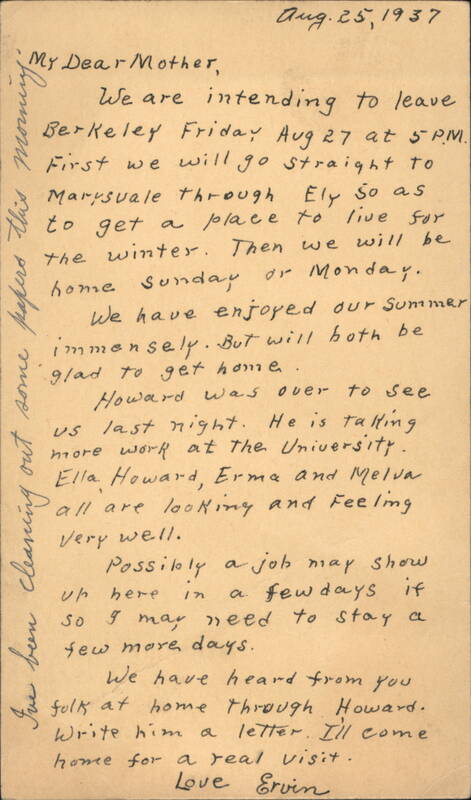 Aug. 25, 1937
My Dear Mother,
We are intending to leave
Berkeley Friday Aug 27 at 5 P.M.
First we will go straight to
Marysvale through Ely so as
to get a place to live for
the winter. Then we will be
home Sunday or Monday.
We have enjoyed our summer
immensely. But will both be
glad to get home.
Howard was over to see
us last night. He is taking
more work at the University.
Ella, Howard, Erma and Melva
all are looking and feeling
very well.
Possibly a job may show
up here in a few days if
so I may need to stay a
few more days.
We have heard from you
folk at home through Howard.
Write him a letter. I'll come
home for a real visit.
Love Ervin
I've been cleaning out some papers this morning.